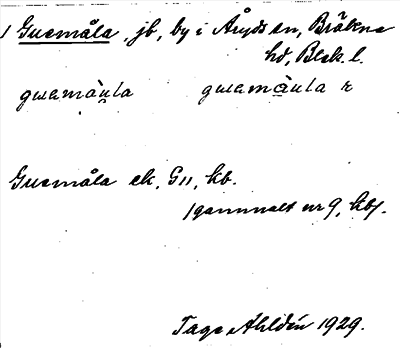 1 Guemåla, jb, by i Åryds sn, Bräkne
hd, Blek. l.
Guemåla ek, G11, kb.
/gammalt nr 9, kb/.
Tage Ahldén 1929.